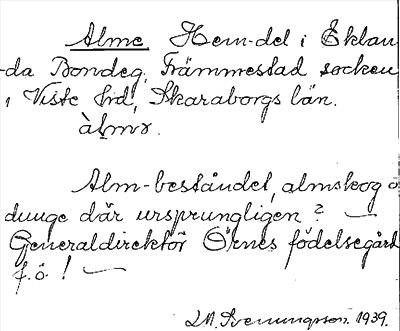 Alme Hem-del i Eklan-
da Bondeg, Främmestad socken
i Viste hrd, Skaraborgs län.
àlmə.
Alm-beståndet, almskog o
dunge där ursprungligen? —
Generaldirektör Örnes födelsegård
f.ö.! —
1939.